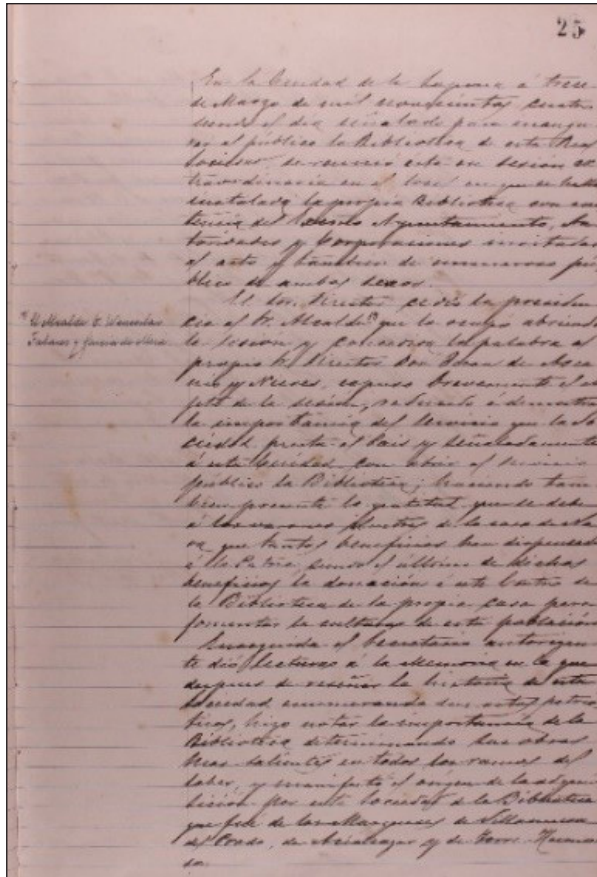 25
En la Ciudad de la Laguna á trece
de Marzo de mil novecientos cuatro
siendo el dia señalado para inaugu
rar al público la Biblioteca de esta Real
Sociedad se reunió esta en sesión ex
traordinaria en el local en que se halla
instalada la propia Biblioteca con asis
tencia del Excmo Ayuntamiento, Au
toridades y Corporaciones invitadas
al acto y tambien de numeroso pú
blico de ambos sexos.
El Sor. Director cedió la presiden
cia al Sr. Alcalde que la ocupó abriendo
la sesión y concedida la palabra al
propio Sr. Director Don Juan de Asca
nio y Nieves, expuso brevemente el ob
jeto de la sesión, reducido á demostrar
la importancia del servicio que la So
ciedad presta al Pais y señaladamente
á esta Ciudad con abrir al servicio
público la Biblioteca; haciendo tam
bien presente la gratitud que se debe
á los varones ilustres de la casa de Na
va, que tantos beneficios han dispensado
á la Patria siendo el último de dichos
beneficios la donación á este Centro de
la Biblioteca de la propia casa para
fomentar la cultura de esta población
Enseguida el Secretario autorizan
te dió lectura á la Memoria en la que
despues de reseñar la historia de esta
Sociedad enumerando sus actos patrió
ticos, hizo notar la importancia de la
Biblioteca determinando las obras
mas salientes en todos los ramos del
saber, y manifestó el origen de la adqui
sición por esta Sociedad de la Biblioteca
que fué de los Marqueses de Villanueva
del Prado, de Acialcazar y de Torre-Hermo
sa.
El Alcalde D. Wenceslao
Tabares y García de Mesa